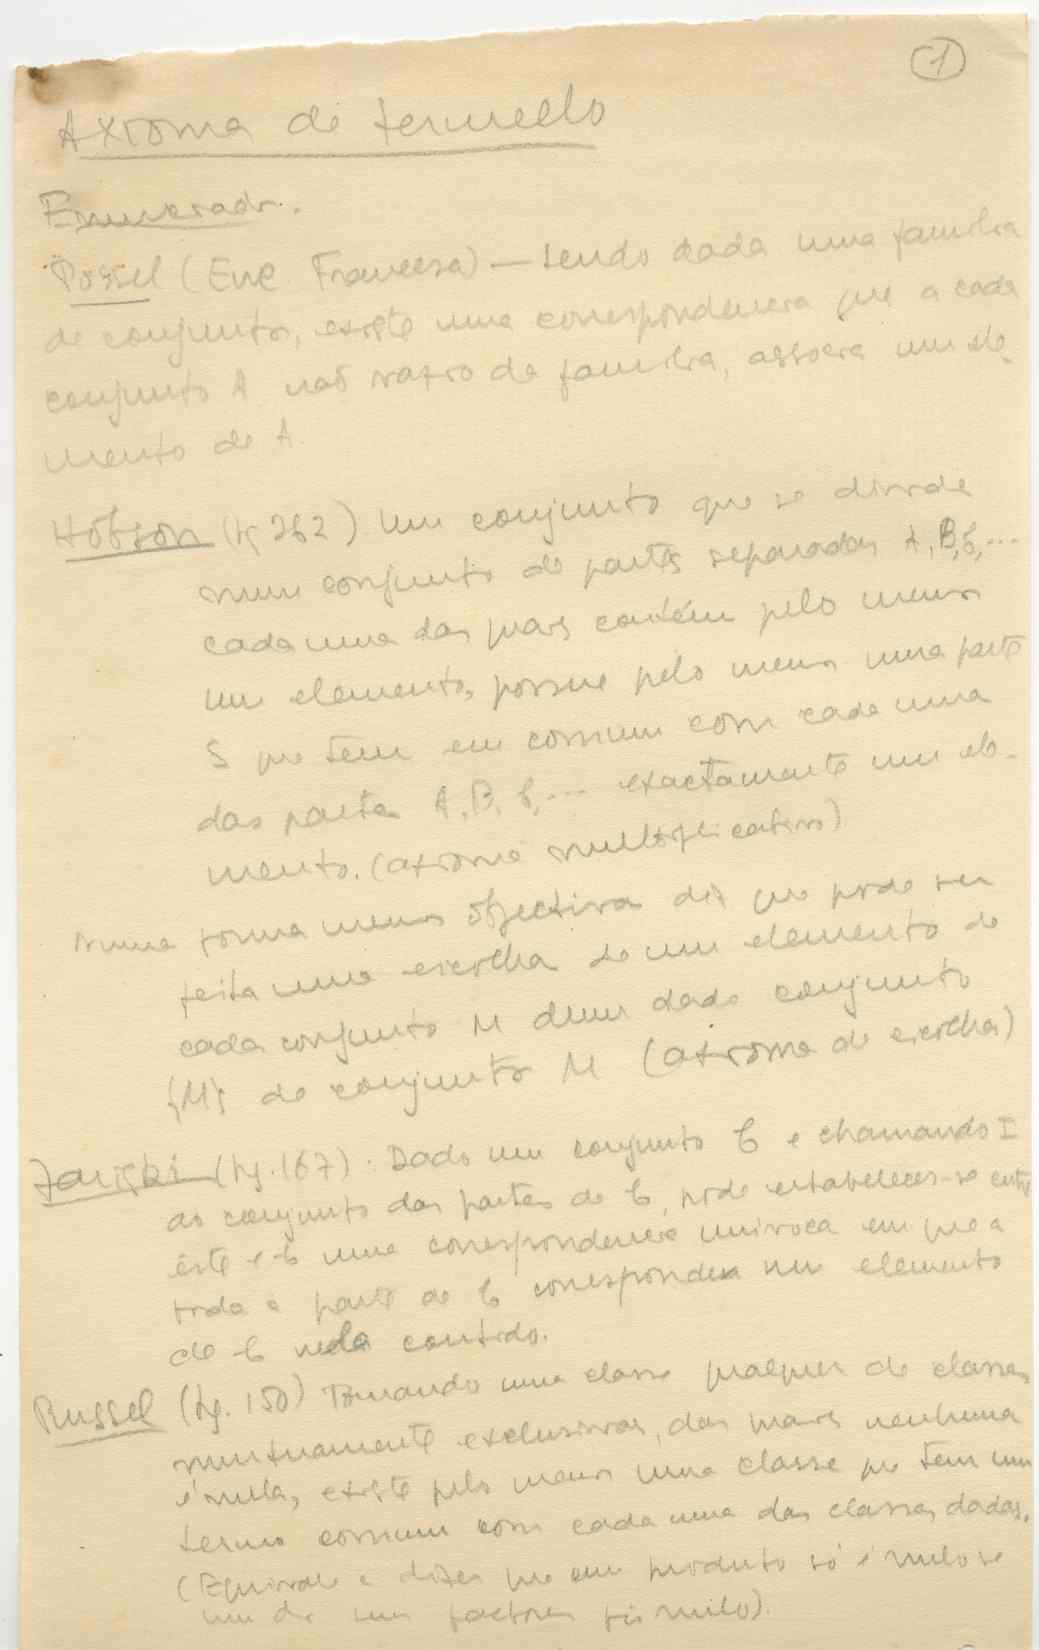 1
Axioma de Zermello
Enunciado.
Possel (Enc. Francesa) — Sendo dada uma familia
de conjuntos, existe uma correspondencia que a cada
conjunto A não vazio da familia, associa um ele-
mento de A.
Hobson (pg 262) Um conjunto que se divide
num conjunto de partes separadas A, B, C, ...
cada uma das quais contém pelo menos
um elemento, possue pelo menos uma parte
S que tem em comum com cada uma
das partes A, B, C, ... exactamente um ele-
mento. (axioma multiplicativo)
Numa forma menos objectiva diz que pode ser
feita uma escolha de um elemento de
cada conjunto M dum dado conjunto
{M} de conjuntos M (axioma de escolha)
Zariski (pg. 167). Dado um conjunto C e chamando I
ao conjunto das partes de C, pode estabelecer-se entre
êste e C uma correspondencia univoca em que a
toda a parte de C corresponda um elemento
de C nela contido.
Russel (pg. 150) Tomando uma classe qualquer de classes
mutuamente exclusivas, das quais nenhuma
é nula, existe pelo menos uma classe que tem um
termo comum com cada uma das classes dadas.
(Equivale a dizer que um produto só é nulo se
um dos seus factores fôr nulo).